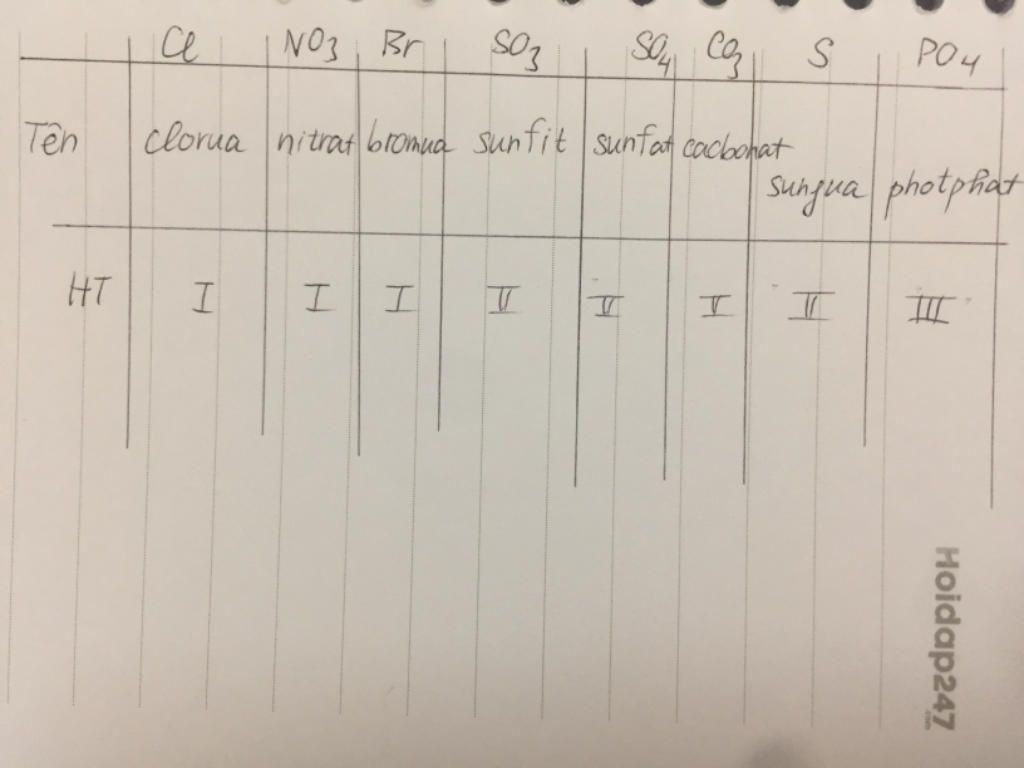 Cl NO3 Br SO3 SO4 CO3 S PO4
Tên clorua nitrat bromua sunfit sunfat cacbonat sunfua photphat
HT I I I II II II II III
Hoidap247
.com